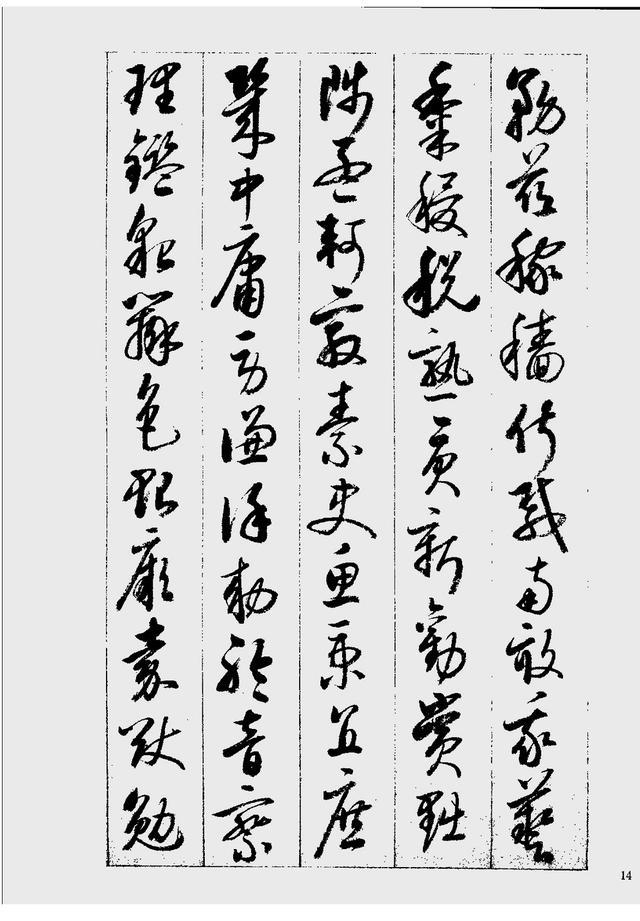 務茲稼穡俶載南畝我藝
黍稷稅熟貢新勸賞黜
陟孟軻敦素史魚秉直庶
幾中庸勞謙謹敕聆音察
理鑑貌辯色貽厥嘉猷勉
14